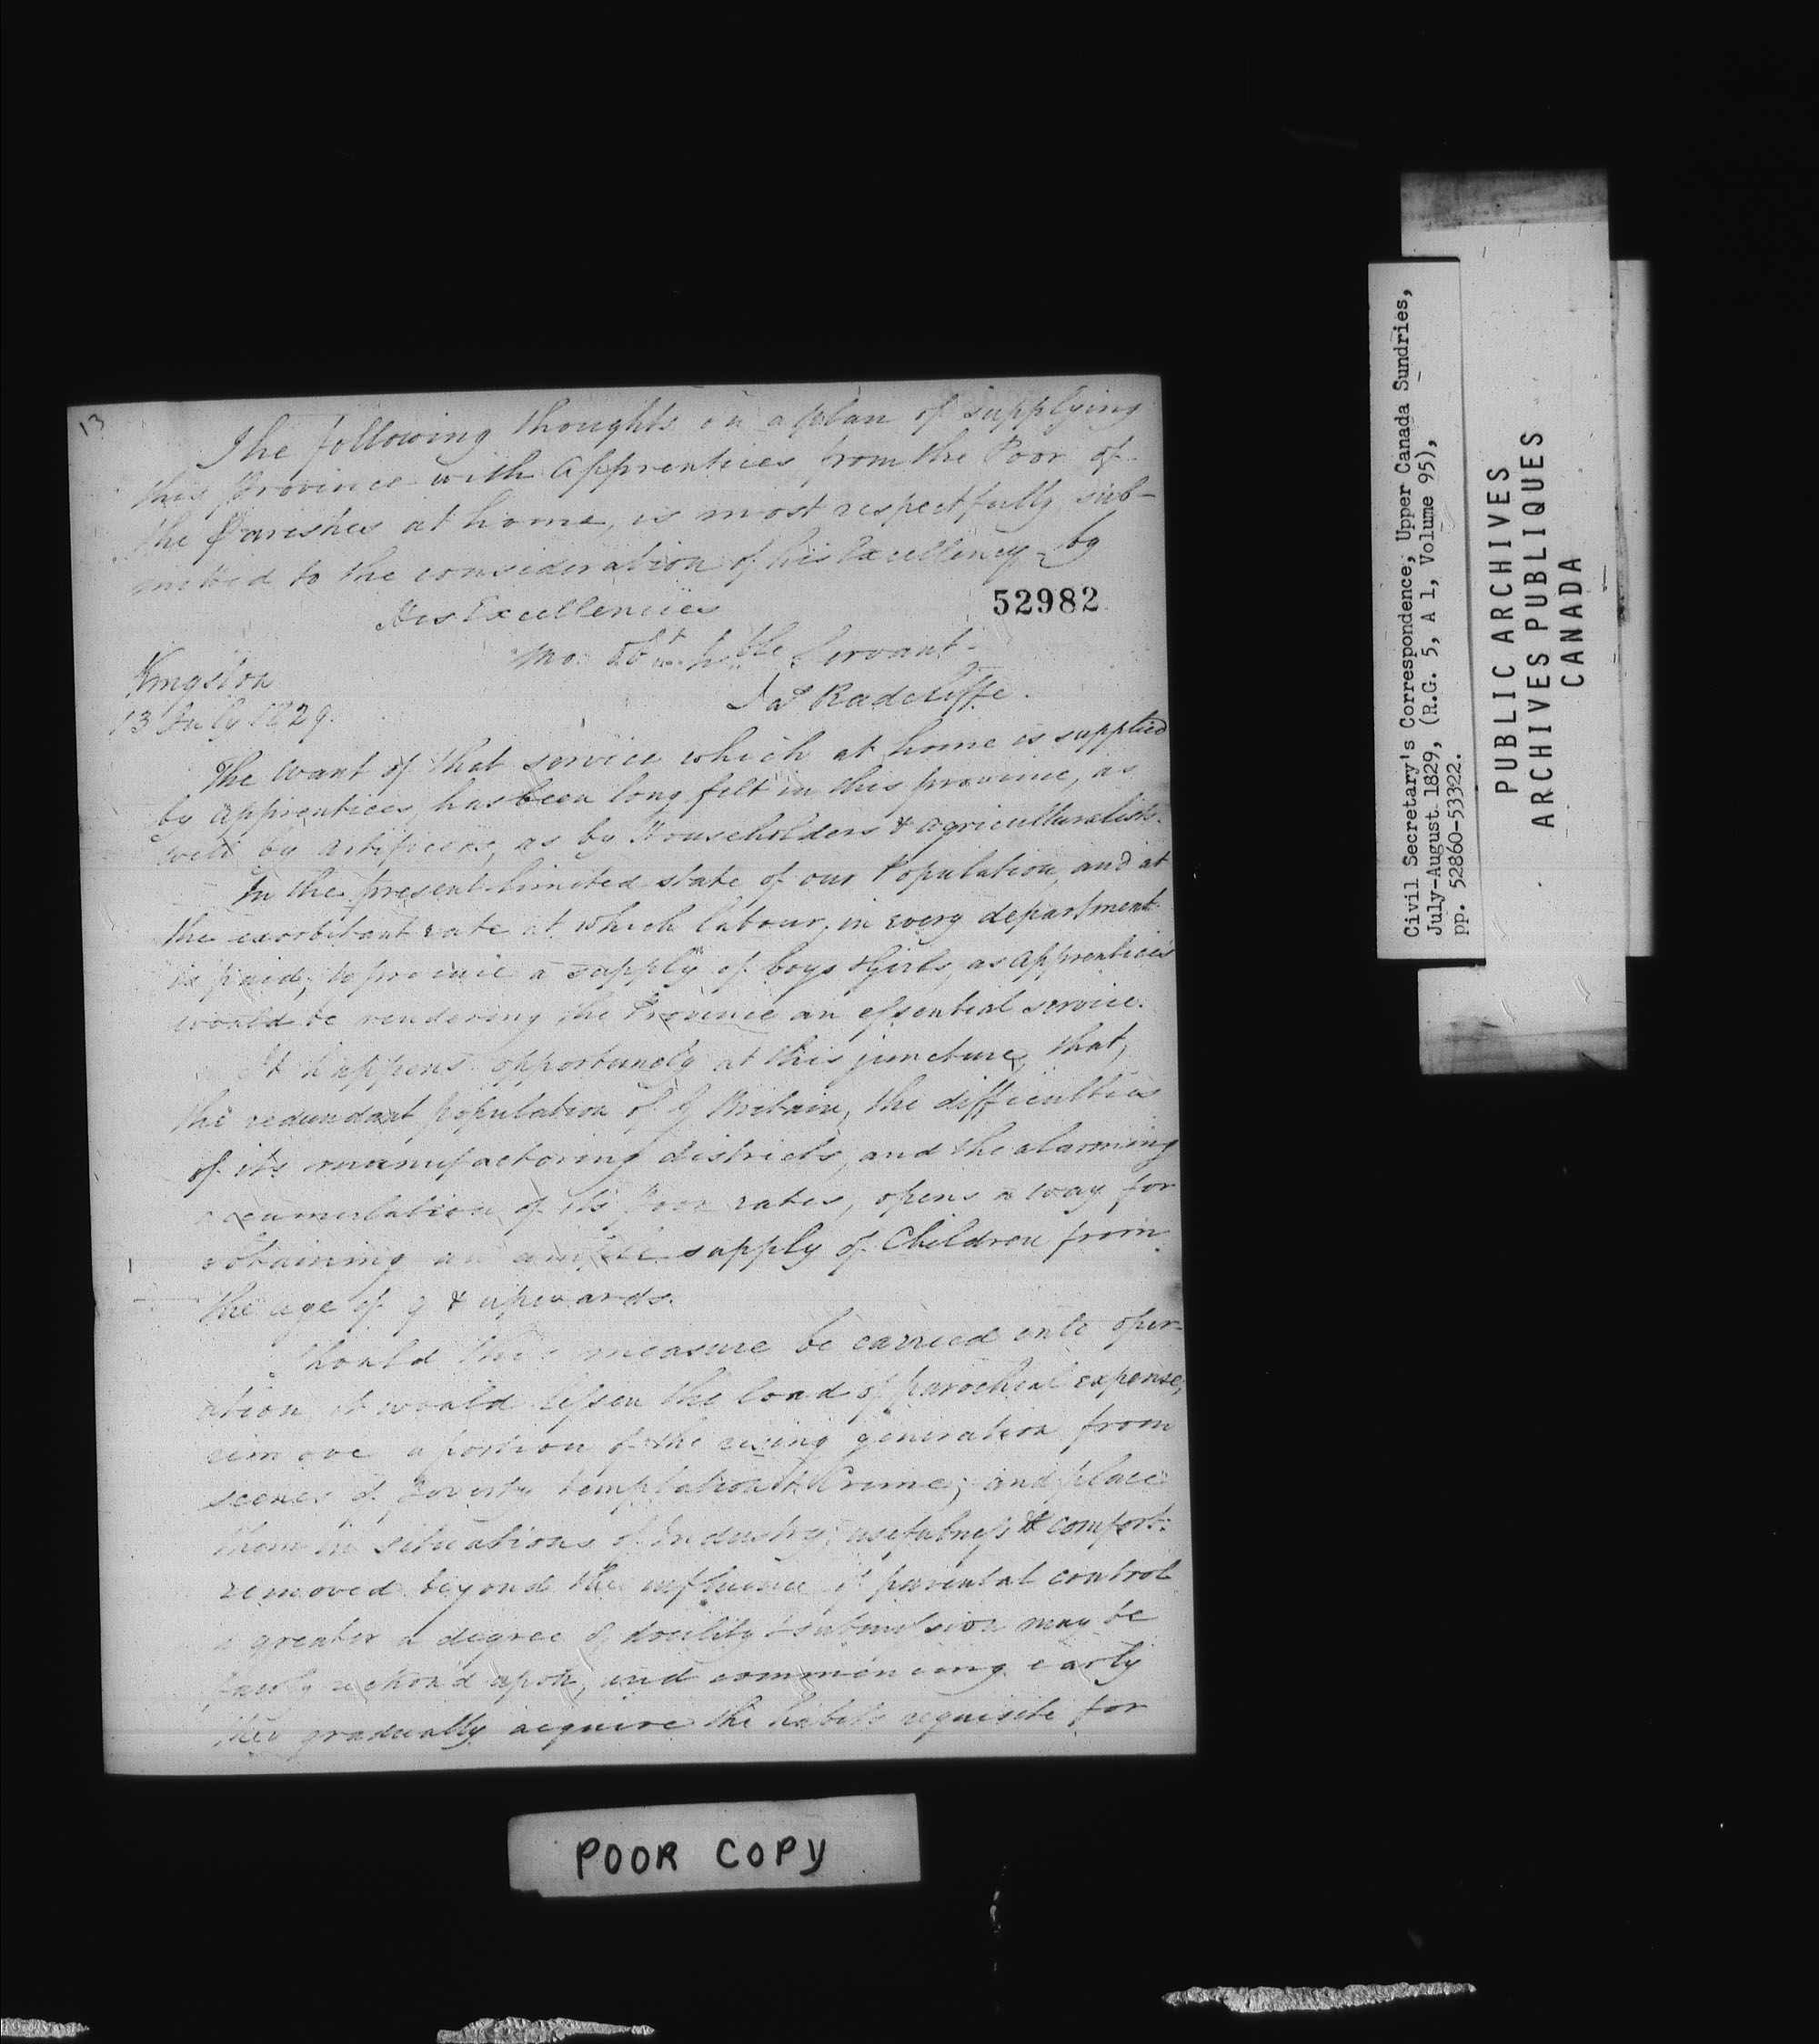 13
The following thoughts on a plan of supplying
this Province with Apprentices from the Poor of
the Parishes at home, is most respectfully sub-
mitted to the consideration of his Excellency - by
His Excellencies
52982
Mo. Obt. hble Servant -
Jas Radcliffe.
Kingston
13 July 1829.
The want of that service which at home is supplied
by apprentices, has been long felt in this province, as
well by artificers, as by Householders & agriculturalists.
In the present limited state of our Population, and at
the exorbitant rate at which labour, in every department
is paid; to procure a supply of boys & Girls, as apprentices
would be rendering the Province an essential service.
It happens opportunely at this juncture, that,
the redundant population of G Britain, the difficulties
of its manufactoring districts, and the alarming
accumulation of its Poor rates, opens a way for
obtaining an ample supply of Children from
the age of 9 & upwards.
Should this measure be carried into oper-
ation, it would lessen the load of parochial expense,
remove a portion of the rising generation from
scenes of Poverty temptation & Crime; and place
them in situations of Industry, usefulness & comfort:
removed beyond the influence of parental control
a greater a degree of docility & submission may be
fairly reckon'd upon, and commencing early
they gradually acquire the habits requisite for
POOR COPY
Civil Secretary's Correspondence, Upper Canada Sundries,
July-August 1829, (R.G. 5, A 1, Volume 95),
pp. 52860-53322.
PUBLIC ARCHIVES
ARCHIVES PUBLIQUES
CANADA